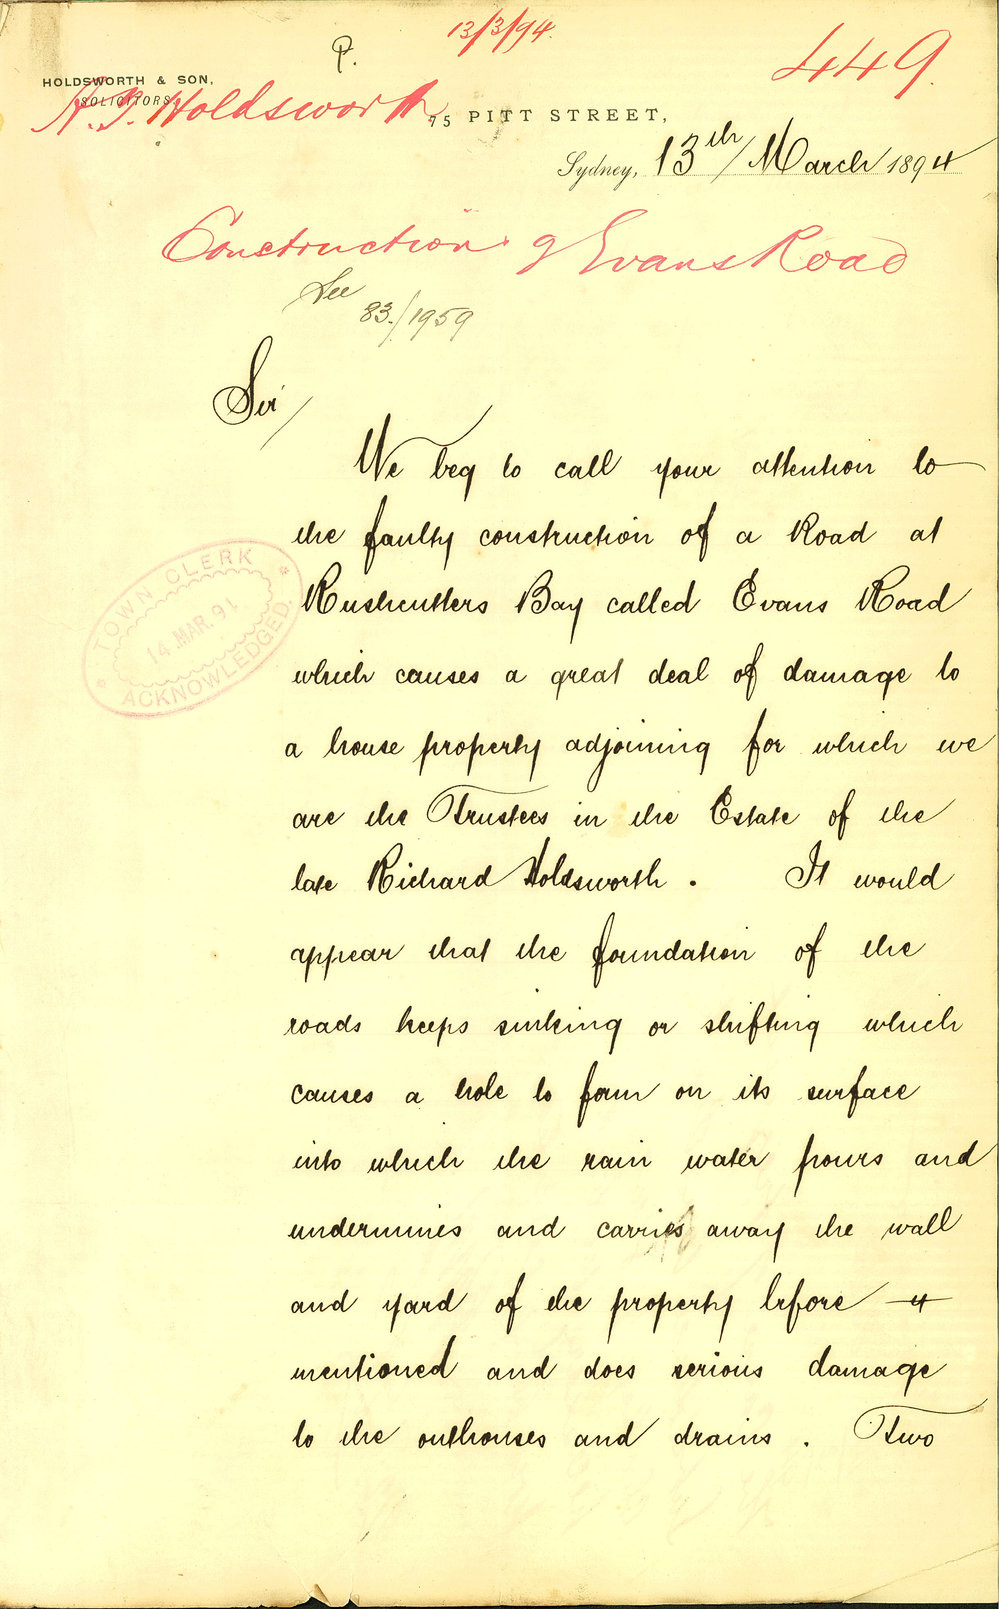 13/3/94.
P.
449.
HOLDSWORTH & SON,
SOLICITORS
Holdsworth
75 PITT STREET,
Sydney, 13th/ March 1894
Construction of Evans Road
See
83./1959
Sir/
We beg to call your attention to
the faulty construction of a Road at
Rushcutters Bay called Evans Road
which causes a great deal of damage to
a house property adjoining for which we
are the Trustees in the Estate of the
late Richard Holdsworth. It would
appear that the foundation of the
roads keeps sinking or shifting which
causes a hole to form on its surface
into which the rain water pours and
undermines and carries away the wall
and yard of the property before
mentioned and does serious damage
to the outhouses and drains. Two
TOWN CLERK
14.MAR.91
ACKNOWLEDGED.